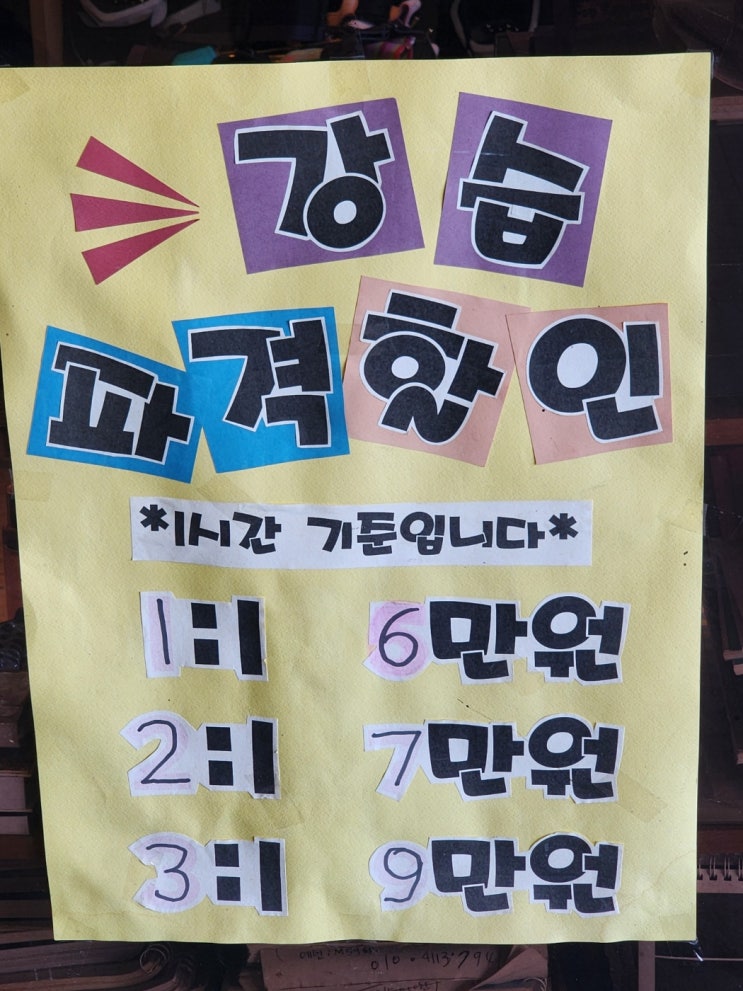 강습
파격할인
*1시간 기준입니다*
1:1 6만원
2:1 7만원
3:1 9만원